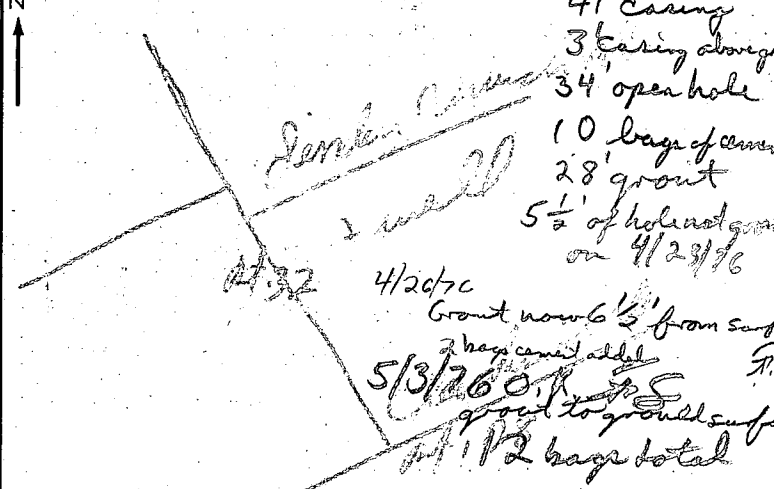 N
41' casing
3' casing above
34' open hole
10 bags of
28' grout
5 1/2' of hole not
on 4/23/76
well
Rt. 32
4/26/76
Grout now 6 1/2' from
2 bags cement added
5/3/76 O.K.
grout to ground
12 bags total